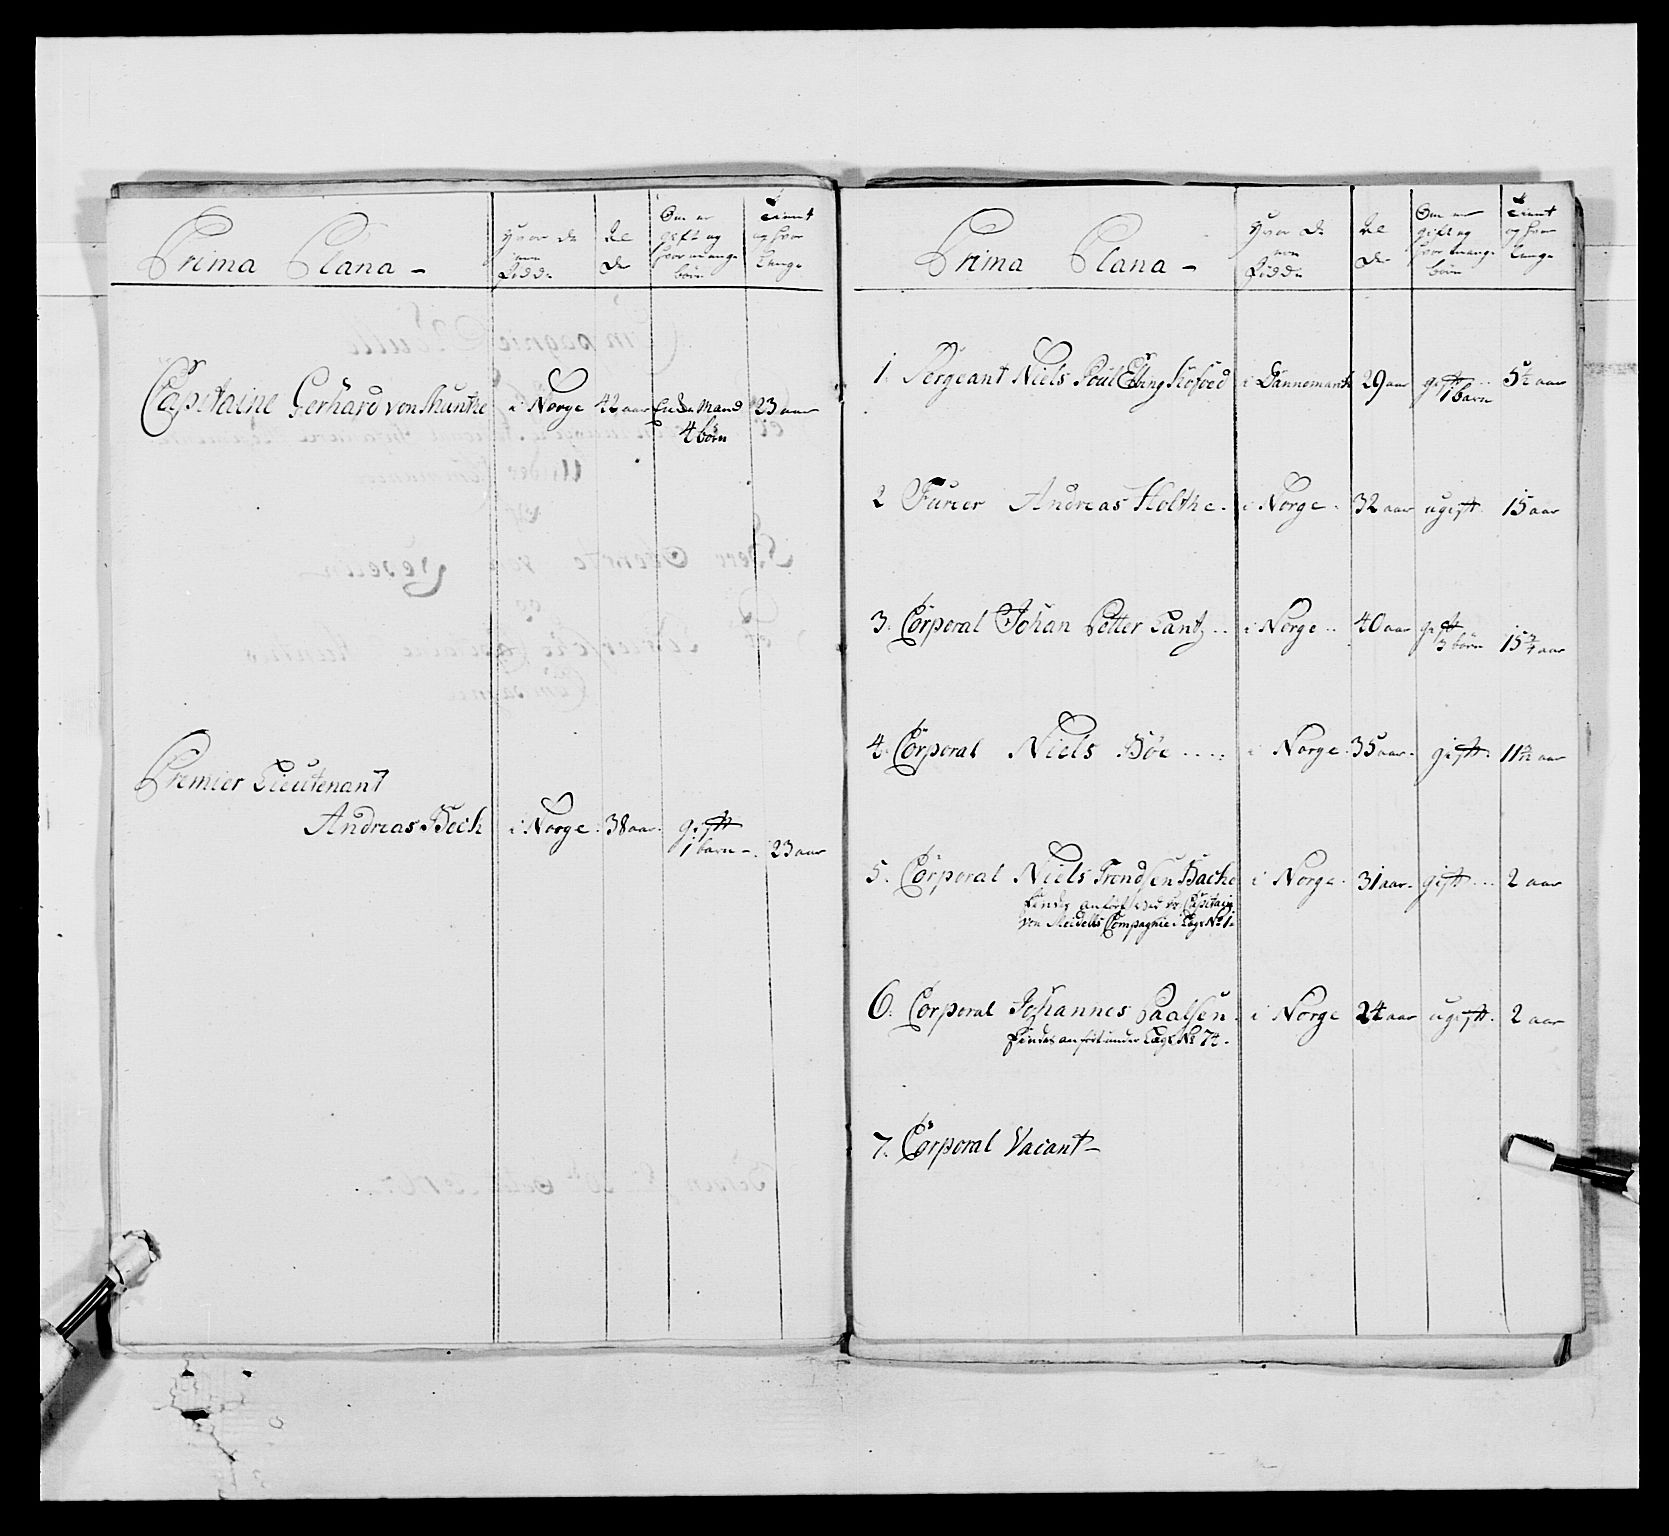 Prima Plana -
Hvor de
ere
fødde
Al
de
Om er
gift og
hvor mange
børn
Tient
og hvor
lenge
Capitaine Gerhard von Munthe i Norge 42 aar Enke Mand 23 aar
4 børn
Premier Lieutenant
Andreas Bech i Norge 38 aar gift
1 barn - 23 aar
Prima Plana -
Hvor de
ere
fødde
Al
de
Om er
gift og
hvor mange
børn
Tient
og hvor
lenge
1. Sergeant Niels Poul Eling Schfoed i Dannemark 29 aar gift 5½ aar
1 barn
2 Furier Andreas Holthe. i Norge. 32 aar ugift 15 aar
3. Corporal Johan Petter Lantz.. i Norge.. 40 aar gift
3 børn 15¾ aar
4. Corporal Niels Böe..... i Norge. 35 aar. gift. 11½ aar
5. Corporal Niels Trondsen Bache i Norge. 31 aar. gift... 2 aar
findes anført ved Hr Capitain
von Meidells Compagnie i Læg No 1.
6. Corporal Johannes Paalsen. i Norge 24 aar ugift. 2 aar
findes anført under Læg No 74.
7. Corporal Vacant -